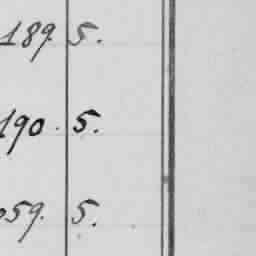 189. 5.
190. 5.
059. 5.